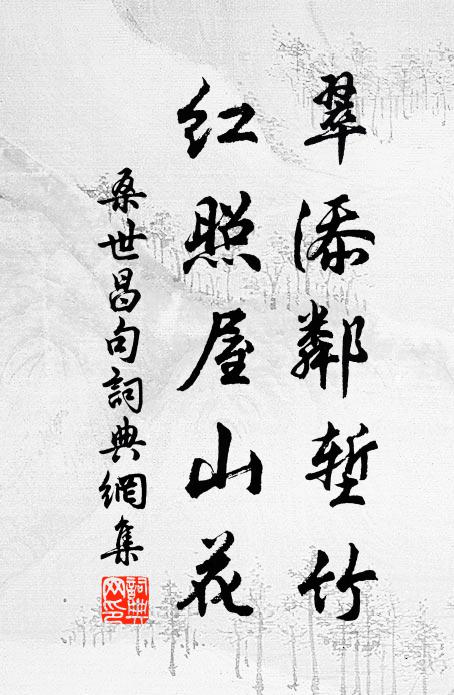 翠添鄰塹竹
紅照屋山花
桑世昌句詞典網集
詞典網印